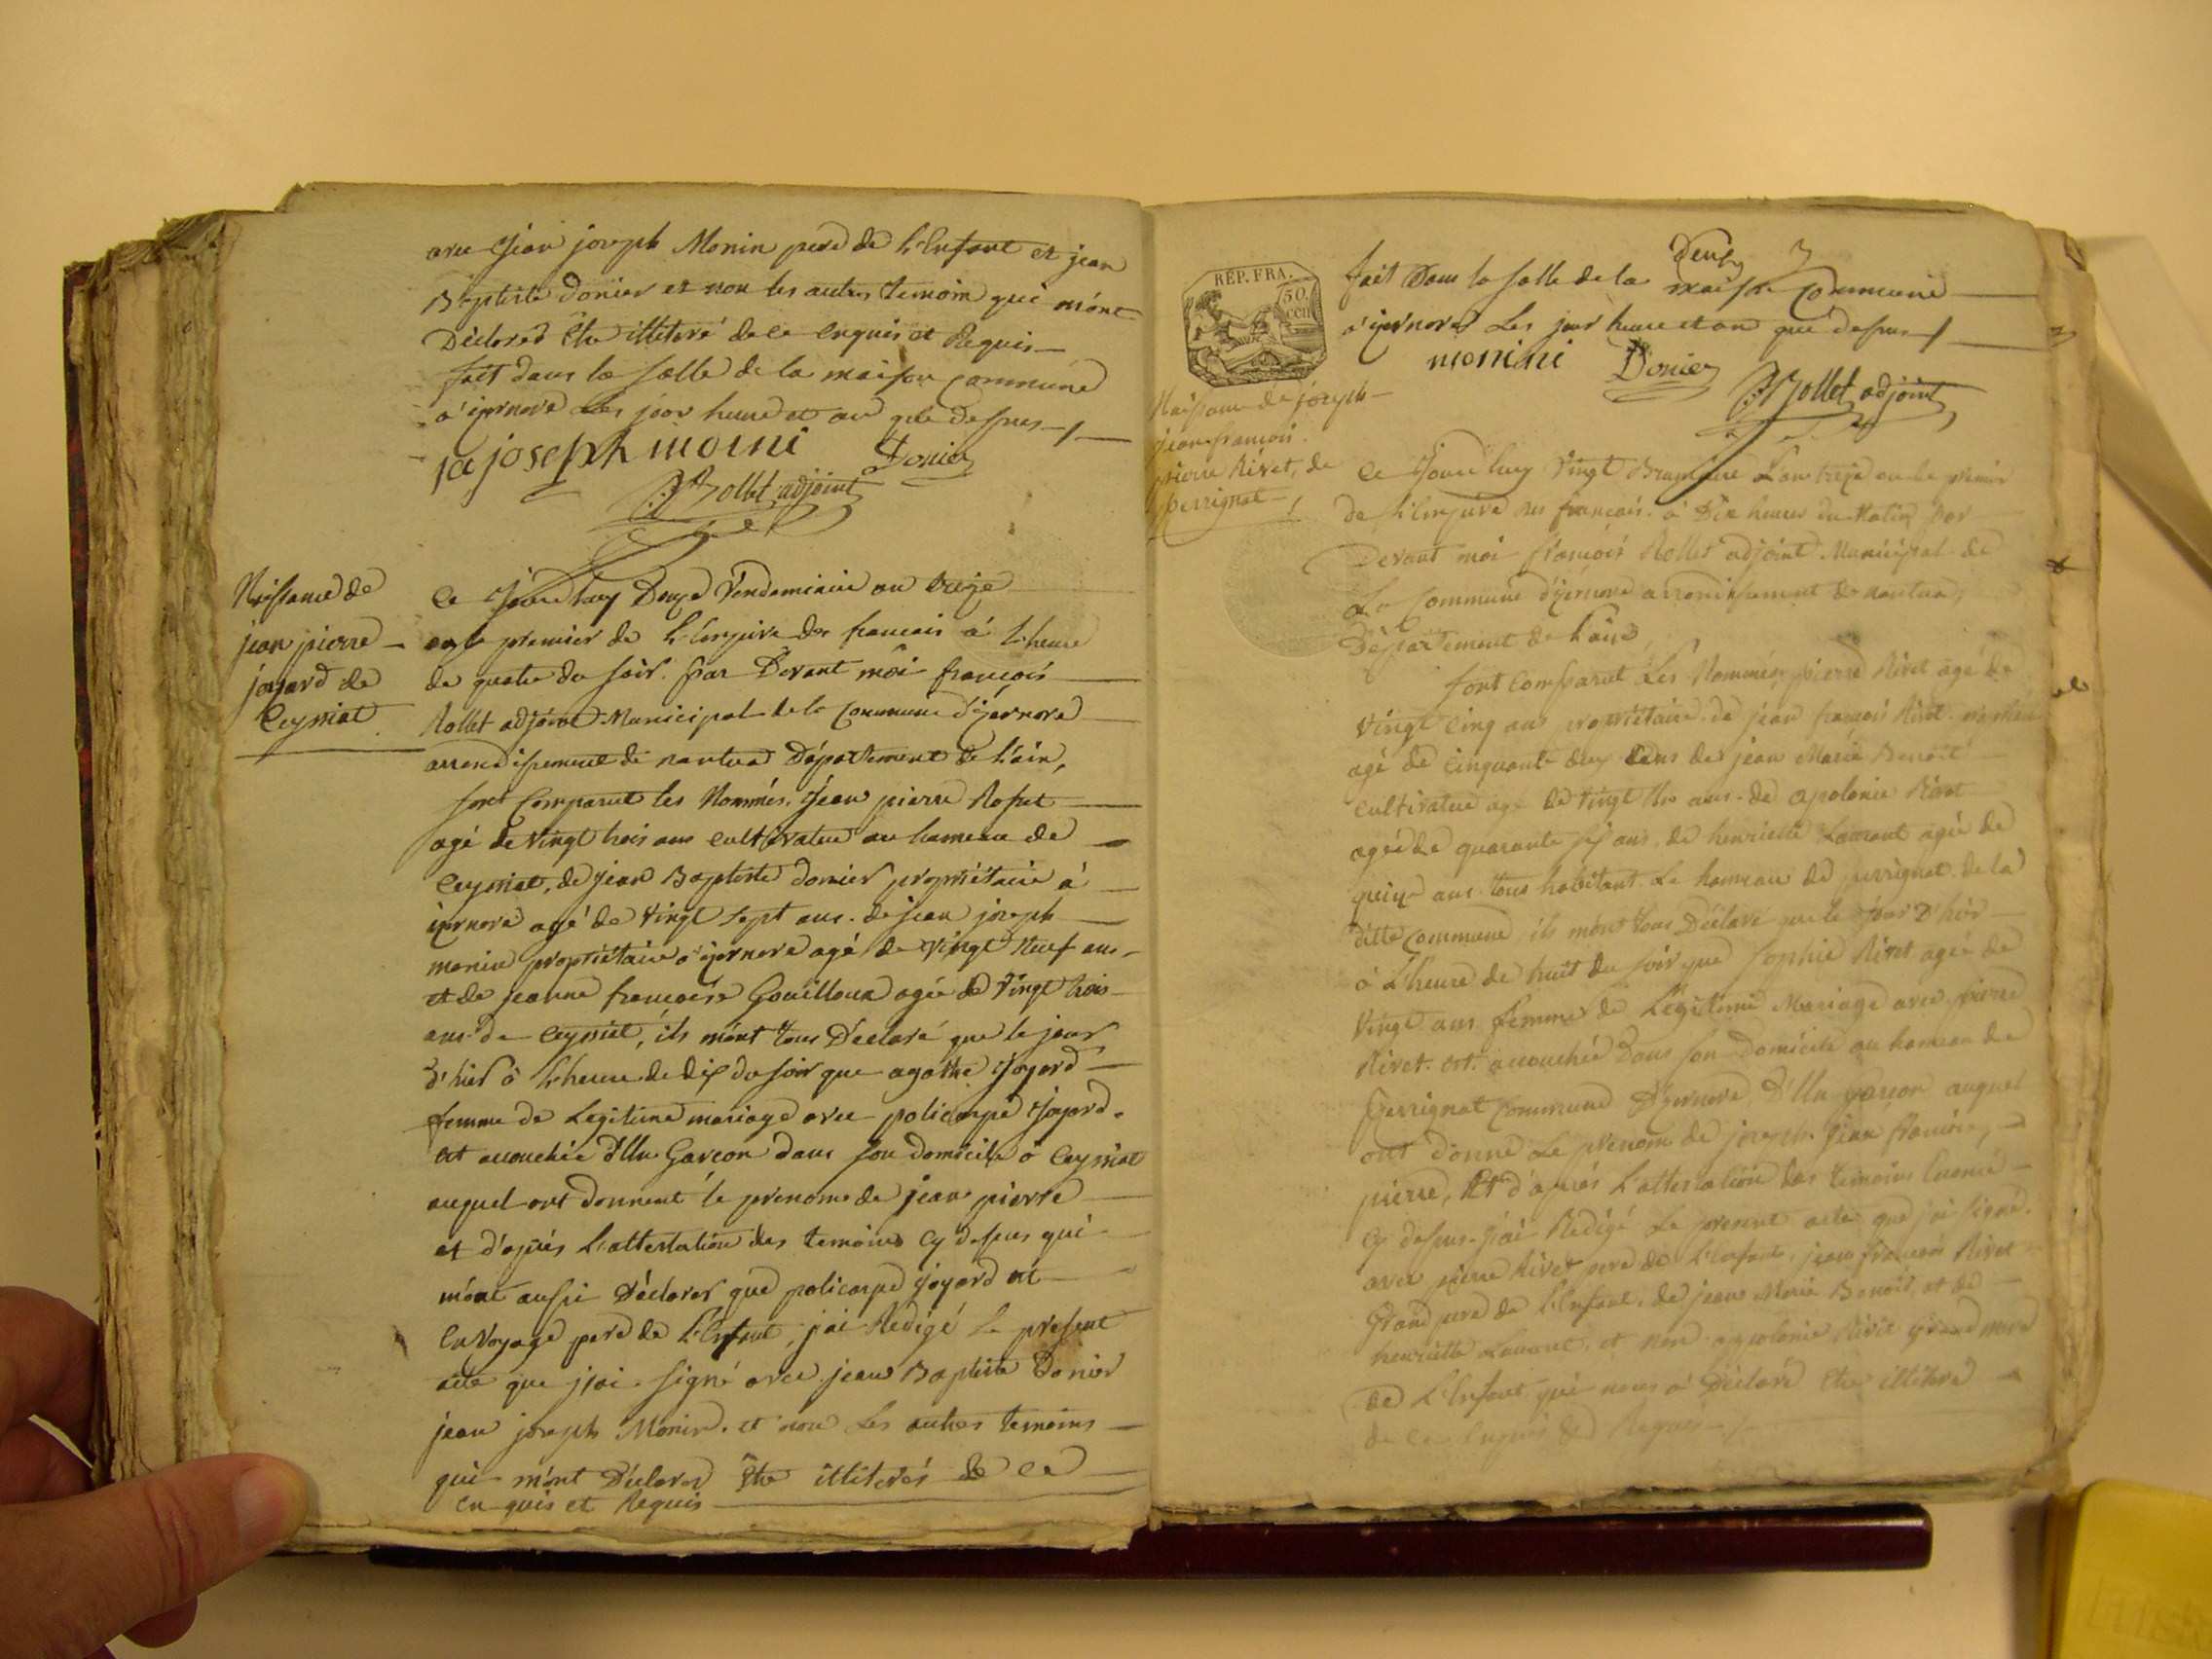 avec jean joseph Monin pere de l'Enfant et jean
Baptiste donier et non les autres temoin qui m'ont
Déclaréd Etre illiteré de ce Enquis et Requis
fait dans la salle de la maison commune
a izernore les jour heure et an que dessus
ja joseph monni Donier
Rollet adjoint
Naissance de
jean pierre
joyard de
Ceyssiat
Ce Jourdhuy Douze Vendemiaire an treize
ou le premier de L'Empire des francais à L'heure
de quatre du soir. par Devant moi françois
Rollet adjoint Municipal de la Commune d'izernore
arrondissement de nantua Département de L'ain,
sont Comparut les Nommés, jean pierre Rosset
agé de vingt trois ans cultivateur au hameau de
Ceyssiat, de jean Baptiste donier propriétaire à
izernore agé de vingt sept ans. de jean joseph
monin propriétaire a izernore agé de vingt Neuf ans
et de jeanne françoise Gouilloux agée de vingt trois
ans de Ceyssiat, ils m'ont tous Déclaré que le jour
d'hier à L'heure de dix du soir que agathe Joyard
femme de Legitime mariage avec policarpe Joyard
est acouchée d'Un Garçon dans son domicile à Ceyssiat
auquel ont donnent le prenom de jean pierre
et d'après L'attestation des temoins cy dessus qui
m'ont aussi déclarer que policarpe joyard est
En Voyage pere de L'Enfant, j'ai Redigé le present
acte que j'ai signé avec jean Baptiste Donier
jean joseph Monin. et non Les autres temoins
qui m'ont Déclarer Etre illiterés de ce
enquis et Requis
REP. FRA.
50.
cen
fait Dans la salle de la maison Commune
à izernore Les jour heure et an que dessus
monini Donier
Rollet adjoint
Naissance de joseph
jean françois
pierre Rivet, de
perrignat
Ce Jourdhuy vingt Brumaire L'an treize ou le premier
de L'Empire des francais. à Dix heures du Matin par
Devant moi françois Rollet adjoint Municipal de
La Commune d'izernore arrondissement de nantua,
Département de L'ain
sont Comparut Les Nommés, pierre Rivet agé de
vingt Cinq ans propriétaire. de jean françois Rivet
agé de cinquante deux ans de jean Marie Benoit
cultivateur agé de vingt ans. de apolonie Rivet
agée de quarante ans, de henriette Laurant agée de
quinze ans tous habitant Le hameau de perrignat de la
ditte Commune ils m'ont tous Déclaré que le Jour D'hier
à L'heure de huit du soir que Sophie Rivet agée de
vingt ans femme de Legitime Mariage avec pierre
Rivet. est acouchée Dans son Domicile au hameau de
Perrignat Commune D'izernore D'Un garçon auquel
ont donné Le prenom de joseph. jean françois,
pierre, Et d'après L'attestation des temoins Enoncé
Cy dessus. j'ai Redigé Le present acte que j'ai signé.
avec pierre Rivet pere de L'Enfant, jean françois Rivet
Grand pere de L'Enfant, de jean Marie Benoit, et de
henriette Laurant, et non apolonie Rivet grand mere
de L'Enfant qui nous a Déclaré Etre illiteré
de ce Enquis et Requis